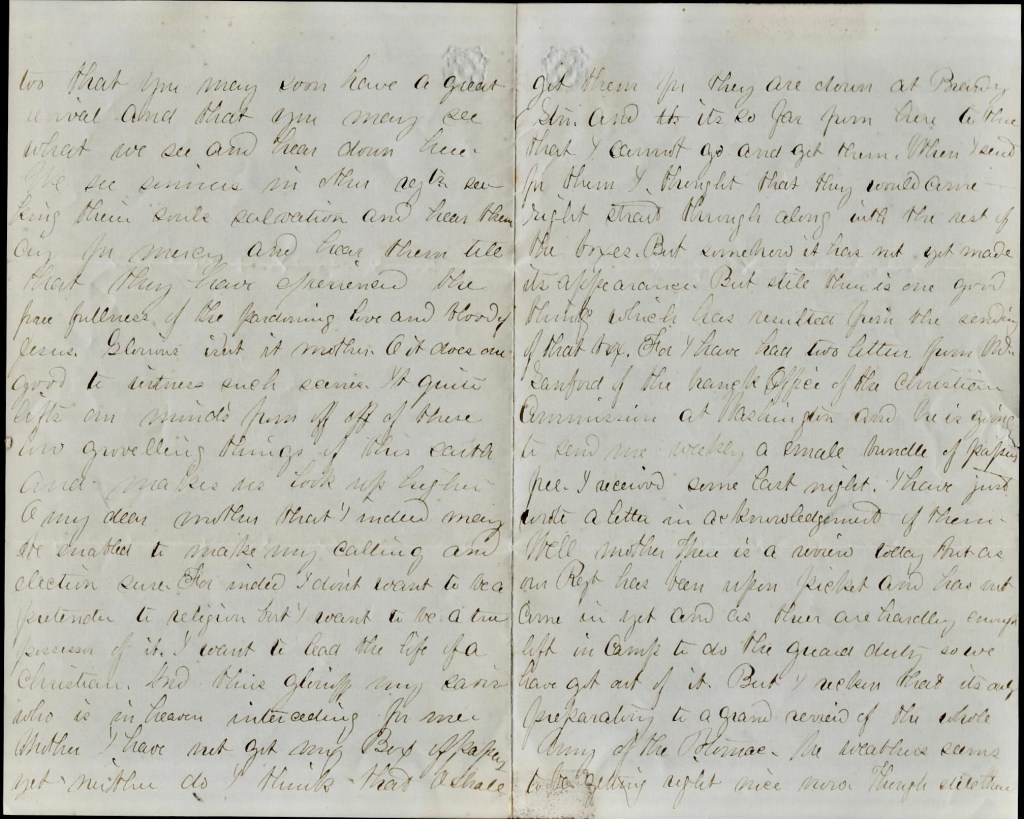 too that you may soon have a great
revival and that you may see
what we see and hear down here.
We see sinners in other regts see
king their souls salvation and hear them
cry for mercy and hear them tell
that they have experienced the
free fullness of the pardoning love and blood of
Jesus. Glorious isnt it mother. O it does one
good to witness such scenes. It quite
lifts our minds from off of these
low grovelling things of this earth
And makes us look up higher
O my dear mother that I indeed may
be enabled to make my calling and
election sure. For indeed I dont want to be a
pretender to religion but I want to be a true
possessor of it. I want to lead the life of a
Christian. And thus glorify my savior
who is in heaven interceding for me
Mother I have not got my Box of papers
yet neither do I think that I shall
get them for they are down at Brandy
Stn. And its so far from here to there
that I cannot go and get them. When I send
for them I thought that they would come
right strait through along with the rest of
the boxes. But somehow it has not yet made
its appearance. But still there is one good
thing which has resulted from the sending
of that box. For I have had two letters from Mr.
Sanford of the Office of the Christian
Commission at Washington and he is going
to send me weekly a small bundle of papers
free. I received some last night. I have just
wrote a letter in acknowledgement of them.
Well mother There is a review today but as
our Regt has been upon picket and has not
Come in yet and as there are hardley enough
left in Camp to do the guard duty so we
have got out of it. But I reckon that its only
preparatory to a grand review of the whole
Army of the Potomac. The weather seems
to be getting right nice now. Though still there